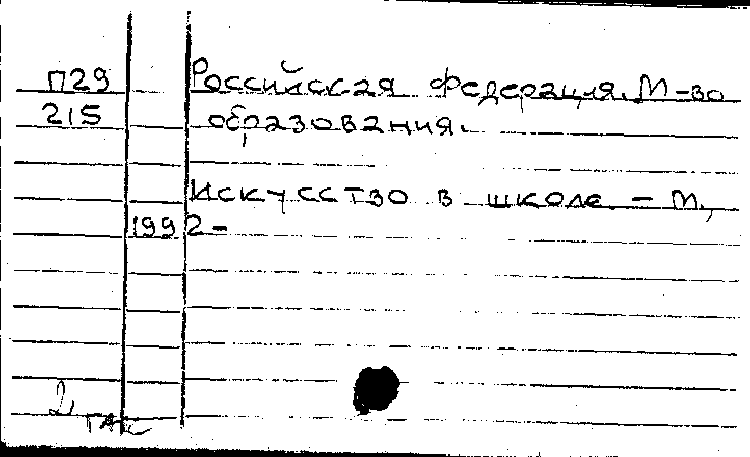 П29 Российская Федерация. М-во
215 образования.
Искусство в школе. – М.,
1992–
2